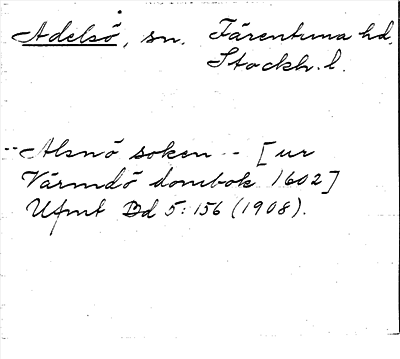 Adelsö, sn. Färentuna hd.
Stockh. l.
-- Alsnö soken -- [ur
Värmdö dombok 1602]
Ufmt Bd 5:156 (1908).